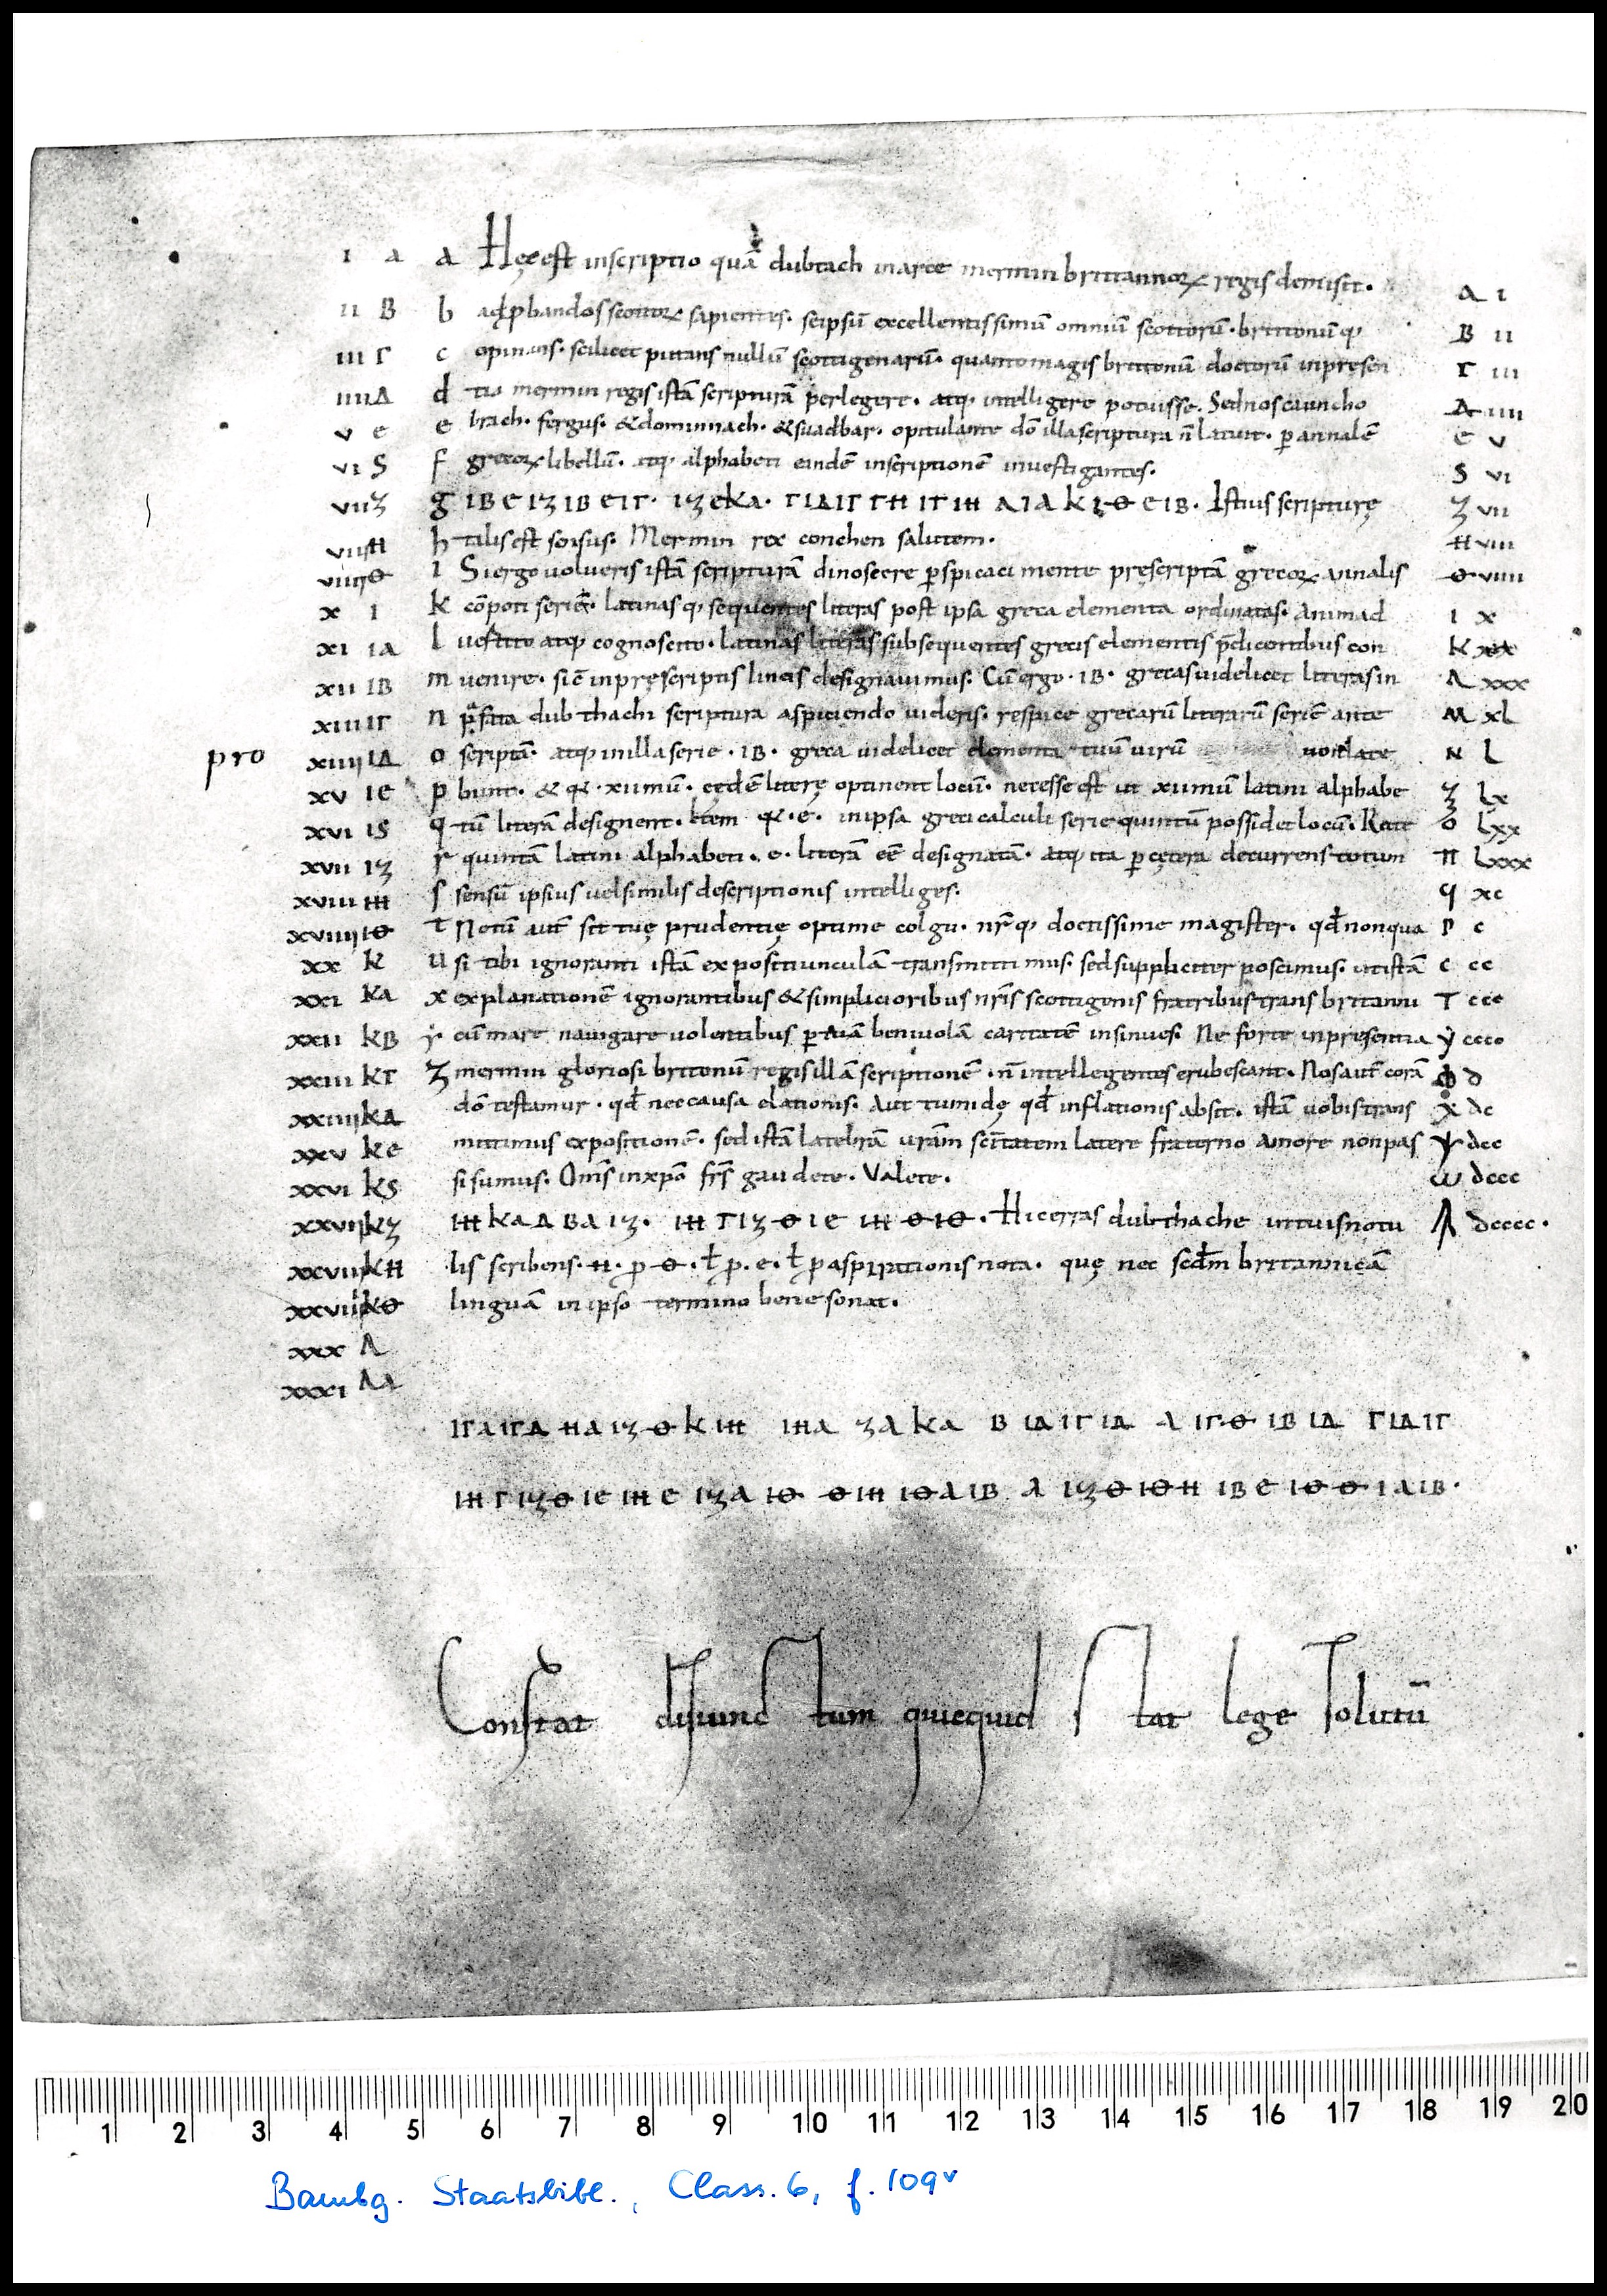 I a a Hęc est inscriptio quā dubtach inarce mermin britannoꝝ regis demisit. A I
II B b adꝓbandos scottoꝝ sapientes. seipsū excellentissimū omniū scottorū. brittonūqꝫ B II
III Γ c opinans. scilicet putans nullū scottigenarū. quantomagis brittonū doctorū inpresen Γ III
IIII Δ d tia mermin regis istā scripturā perlegere. atqꝫ intelligere potuisse. Sed nos cauncho Δ IIII
V e e brach. fergus. & dominnach. & suadbar. opitulante dō illa scriptura n̄ latuit. ꝑ annalē e V
VI S f grecoꝝ libellū. atqꝫ alphabeti eiudē inscriptionē inuestigantes. S VI
VII Ʒ g IB e IƷ IB e IΓ. IƷ e Ka. Γ IΔ IΓ Γ H IΓ IH A Ia K Ꝋ e IB. Istius scripturę Ʒ VII
VIII H h talis est sensus. Mermin rex conchen salutem. H VIII
VIIII Θ I Si ergo uolueris istā scripturā dinoscere ꝑspicaci mente pręscriptā grecoꝝ annalis Θ VIIII
X I K cōpoti seriē. latinasqꝫ sequentes literas post ipsa greca elementa ordinatas. animad I X
XI Ia l uertito atqꝫ cognoscito. latinas literas subsequentes grecis elementis p̄dicentibus con K XX
XII IB m uenire. sic̄ inpręscriptis lineis designauimus. Cū ergo .IB. grecas uidelicet literas in Λ XXX
XIII IΓ n p̄fata dubthachi scriptura aspiciendo uideris. respice grecarū literarū seriē ante M XL
pro XIIII IΔ o scriptā. atqꝫ in illa serie .IB. greca uidelicet elementa tuū uirū non late N L
XV Ie p bunt. & qꝛ .XII mū. ęędē literę optinent locū. necesse est ut XII mū latini alphabe Ʒ LX
XVI IS q tū literā designent. Item qꝛ .e. in ipsa greci calculi serie quintū possidet locū. Rate O LXX
XVII IƷ r quintā latini alphabeti .e. literā eē designatā. atqꝫ ita ꝑ cętera decurrens totum Π LXXX
XVIII IH s sensū ipsius uel similis descriptionis intelliges. q XC
XVIIII IΘ t Notū aut̄ sit tuę prudentię optime colgu. nr̄qꝫ doctissime magister. qd̄ nonqua P C
XX K u si tibi ignoranti istā expositiunculā transmittimus. sed suppliciter poscimus. ut istā C CC
XXI Ka x explanationē ignorantibus & simplicioribus nr̄is scottigenis fratribus trans britanni T CCC
XXII KB y cū mare nauigare uolentibus ꝑ tuā beniuolā caritatē insinues. Ne forte inpresentia Y CCCC
XXIII KΓ Ʒ mermin gloriosi britonū regis illā scriptionē. n̄ intellegentes erubescant. Nos aut̄ corā Φ D
XXIIII KΔ dō testamur. qd̄ nec causa elationis. Aut tumidę qd̄ inflationis absit. istā uobis trans X DC
XXV Ke mittimus expositionē. sed istā latebrā uram̄ sc̄itatem latere fraterno amore non pas Ψ DCC
XXVI KS si sumus. Oms̄ in xp̄o frs̄ gaudete. Valete. ω DCCC
XXVII KƷ IH Ka Δ B a IƷ. IH Γ IƷ Θ Ie IH Θ IΘ. Hic erras dubthache in tuis notu ⋀ DCCCC.
XXVIII KH lis scribens .H. ꝑ Θ. ł ꝑ .e. ł ꝑ aspirationis nota. quę nec scd̄m britannicā
XXVIIII KΘ linguā in ipso termino bene sonat.
XXX Λ
XXXI Λa
IΓ a IΓ Δ H a IƷ Θ K IH IH a Ʒ a K a B IΔ IΓ IΔ a IΓ Θ IB IΔ Γ IΔ IΓ
IH Γ IƷ Θ Ie IH e IƷ a IΘ Θ IH IΘ a IB a IƷ Θ IΘ H IB e IΘ Θ I a IB.
Constat disiunctum quicquid Stat lege Solutū
Bambg. Staatsbibl., Class. 6, f. 109v
1 2 3 4 5 6 7 8 9 10 11 12 13 14 15 16 17 18 19 20